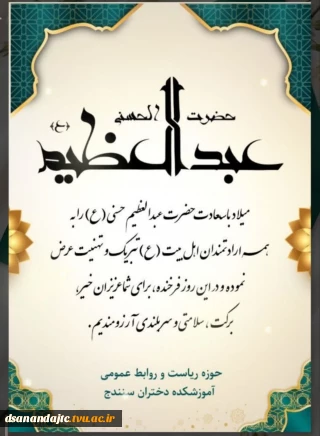 حضرت الحسنی
(ع)
عبدالعظیم
میلاد باسعادت حضرت عبدالعظیم حسنی (ع) را به
همه ارادتمندان اهل بیت (ع) تبریک و تهنیت عرض
نموده و در این روز فرخنده، برای شما عزیزان خیر،
برکت، سلامتی و سربلندی آرزومندیم.
حوزه ریاست و روابط عمومی
آموزشکده دختران سنندج
dsanandajtc.tvu.ac.ir